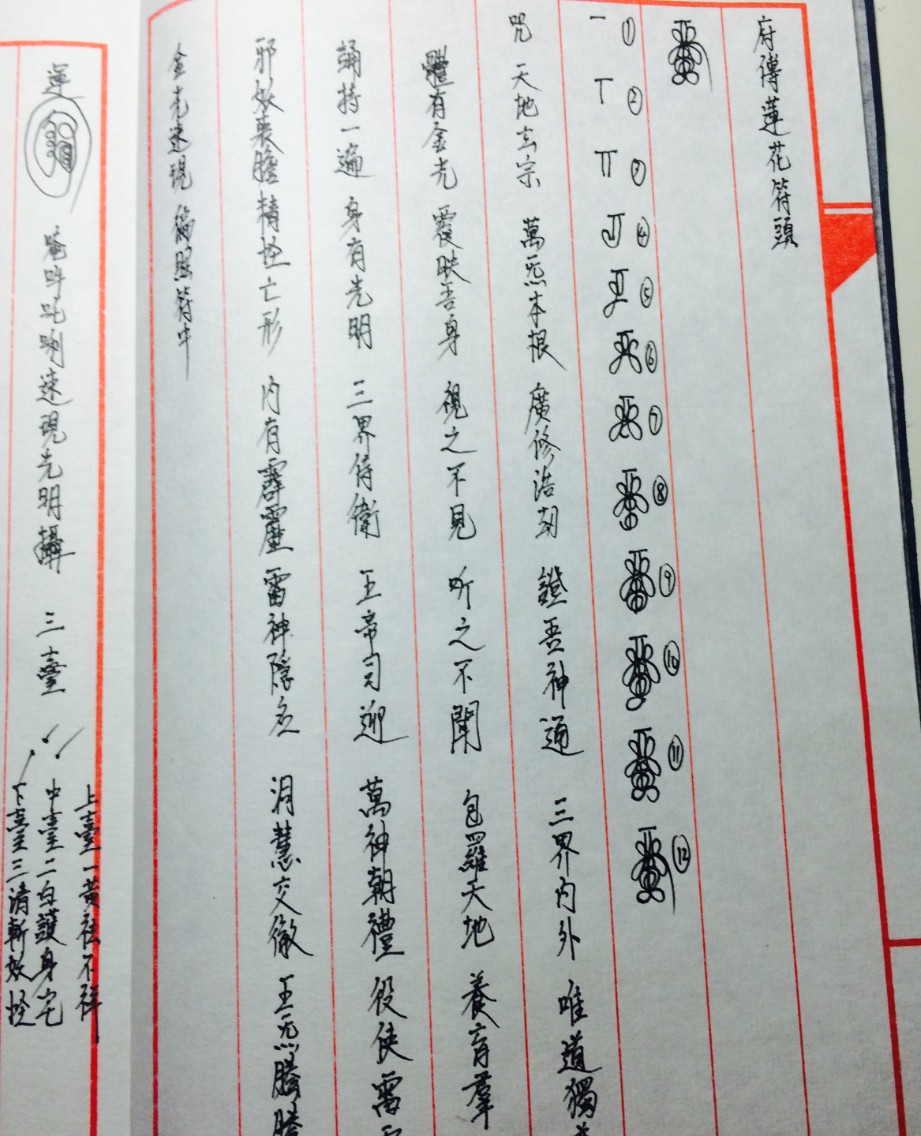 府傳蓮花符頭
① ② ③ ④ ⑤ ⑥ ⑦ ⑧ ⑨ ⑩ ⑪ ⑫
咒 天地玄宗 萬炁本根 廣修浩劫 證吾神通 三界內外 唯道獨
體有金光 覆映吾身 視之不見 听之不聞 包羅天地 養育羣
誦持一遍 身有光明 三界侍衛 五帝司迎 萬神朝禮 役使雷
邪妖喪膽 精怪亡形 內有霹靂 雷神隱名 洞慧交徹 五炁騰騰
金光速現 符中
唵吽吒唎速現光明攝 三臺
上臺一黃祛不祥
中臺二白護身宅
下臺三清斬妖怪